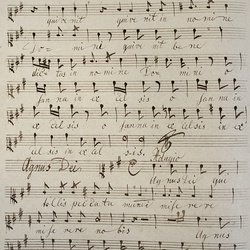 qui ve nit qui ve nit in no mi ne
Do = mi ni qui ve nit be ne
dic tus in no mi ne Do = mi ni o
san na in ex cel sis o san na in
ex cel sis o san na in ex cel sis in ex
cel sis in ex cel sis. Adagio
Agnus Dei Agnus Dei qui
tollis peccata mundi mise re re
mise re re no bis Agnus